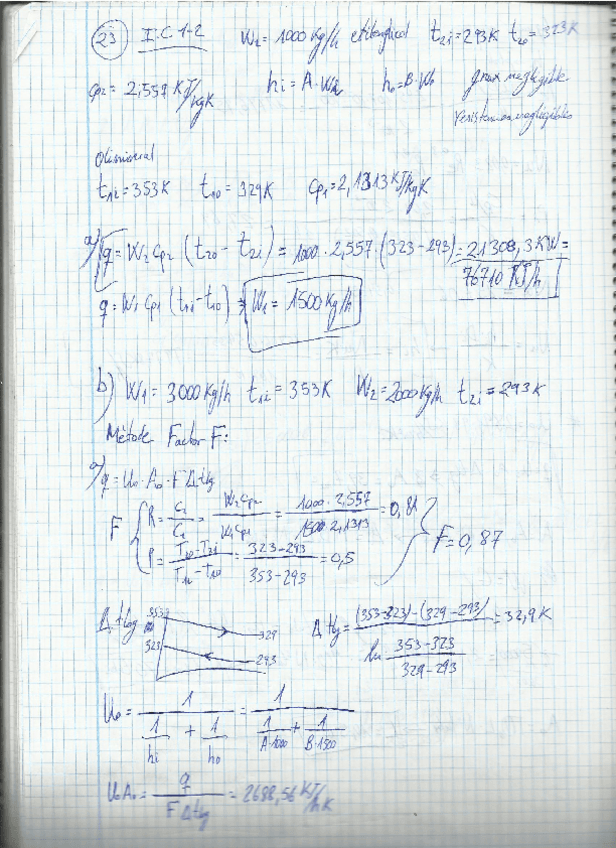 23 I.C 1-2 W₂ = 1000 Kg/h etilenglicol t₂i = 293K t₂o = 323K
cp₂ = 2,557 KJ/kgK hi = A·W₂ ho = B·W₁ gruix negligible
Resistències negligibles
t₁i = 353K t₁o = 329K Cp₁ = 2,1313 KJ/KgK
a) q = W₂ cp₂ (t₂o - t₂i) = 1000 · 2,557 · (323 - 293) = 21308,3 KW =
76710 KJ/h
q = W₁ cp₁ (t₁i - t₁o) ⇒ W₁ = 1500 Kg/h
b) W₁ = 3000 Kg/h t₁i = 353K W₂ = 2000 Kg/h t₂i = 293K
Mètode Factor F:
a) q = Uo · Ao · F Δtlg
F { R = C₂/C₁ = W₂ cp₂/W₁ cp₁ = 1000 · 2,557/1500 · 2,1313 = 0,8
P = T₂o - T₂i/T₁i - t₂i = 323 - 293/353 - 293 = 0,5 } F = 0,87
Δtlog 353 329 323 293 Δtlg = (353-323) - (329-293)/ln 353-323/329-293 = 32,9 K
Uo = 1/(1/hi + 1/ho) = 1/(1/A·1000 + 1/B·1500)
UoAo = q/F Δtlg = 2688,56 KJ/hK